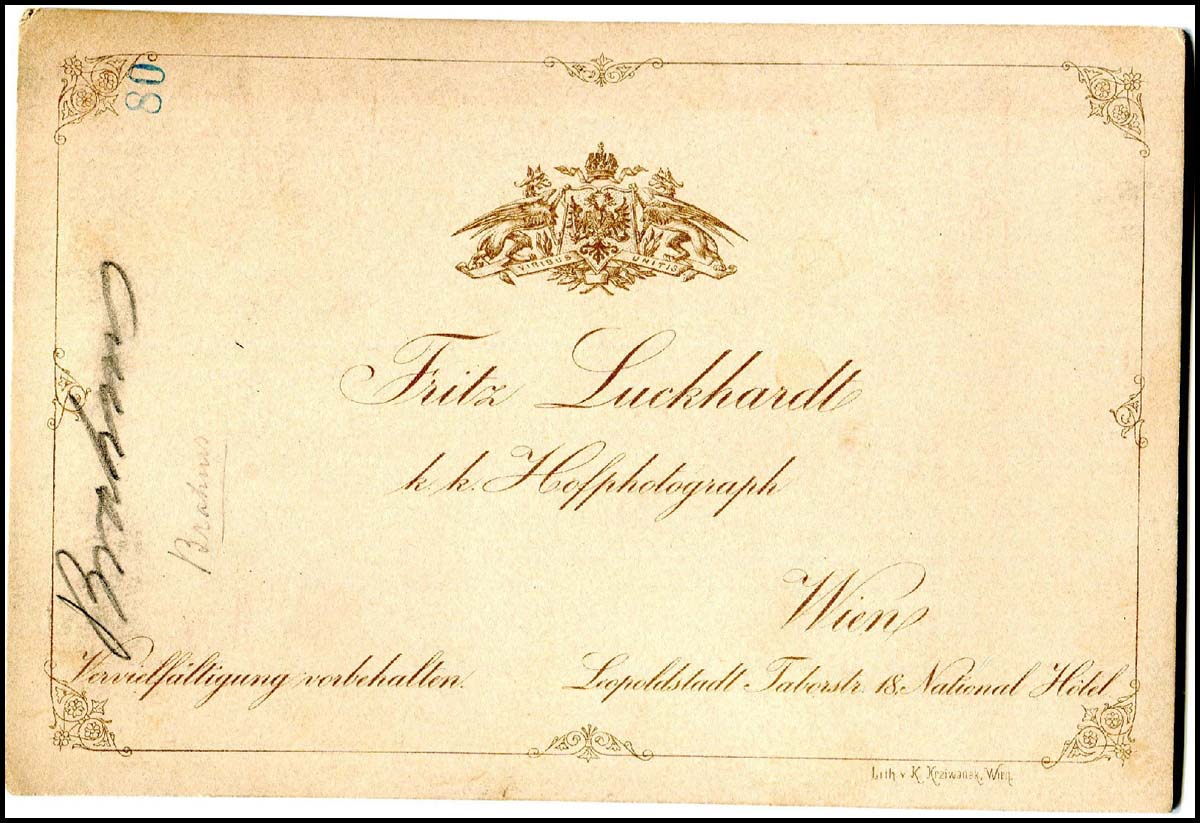 80
VIRIBUS UNITIS
Fritz Luckhardt
k. k. Hofphotograph
Wien
Vervielfältigung vorbehalten.
Leopoldstadt Taborstr. 18. National Hôtel
Lith. v. K. Krziwanek, Wien.
Brahms
Brahms